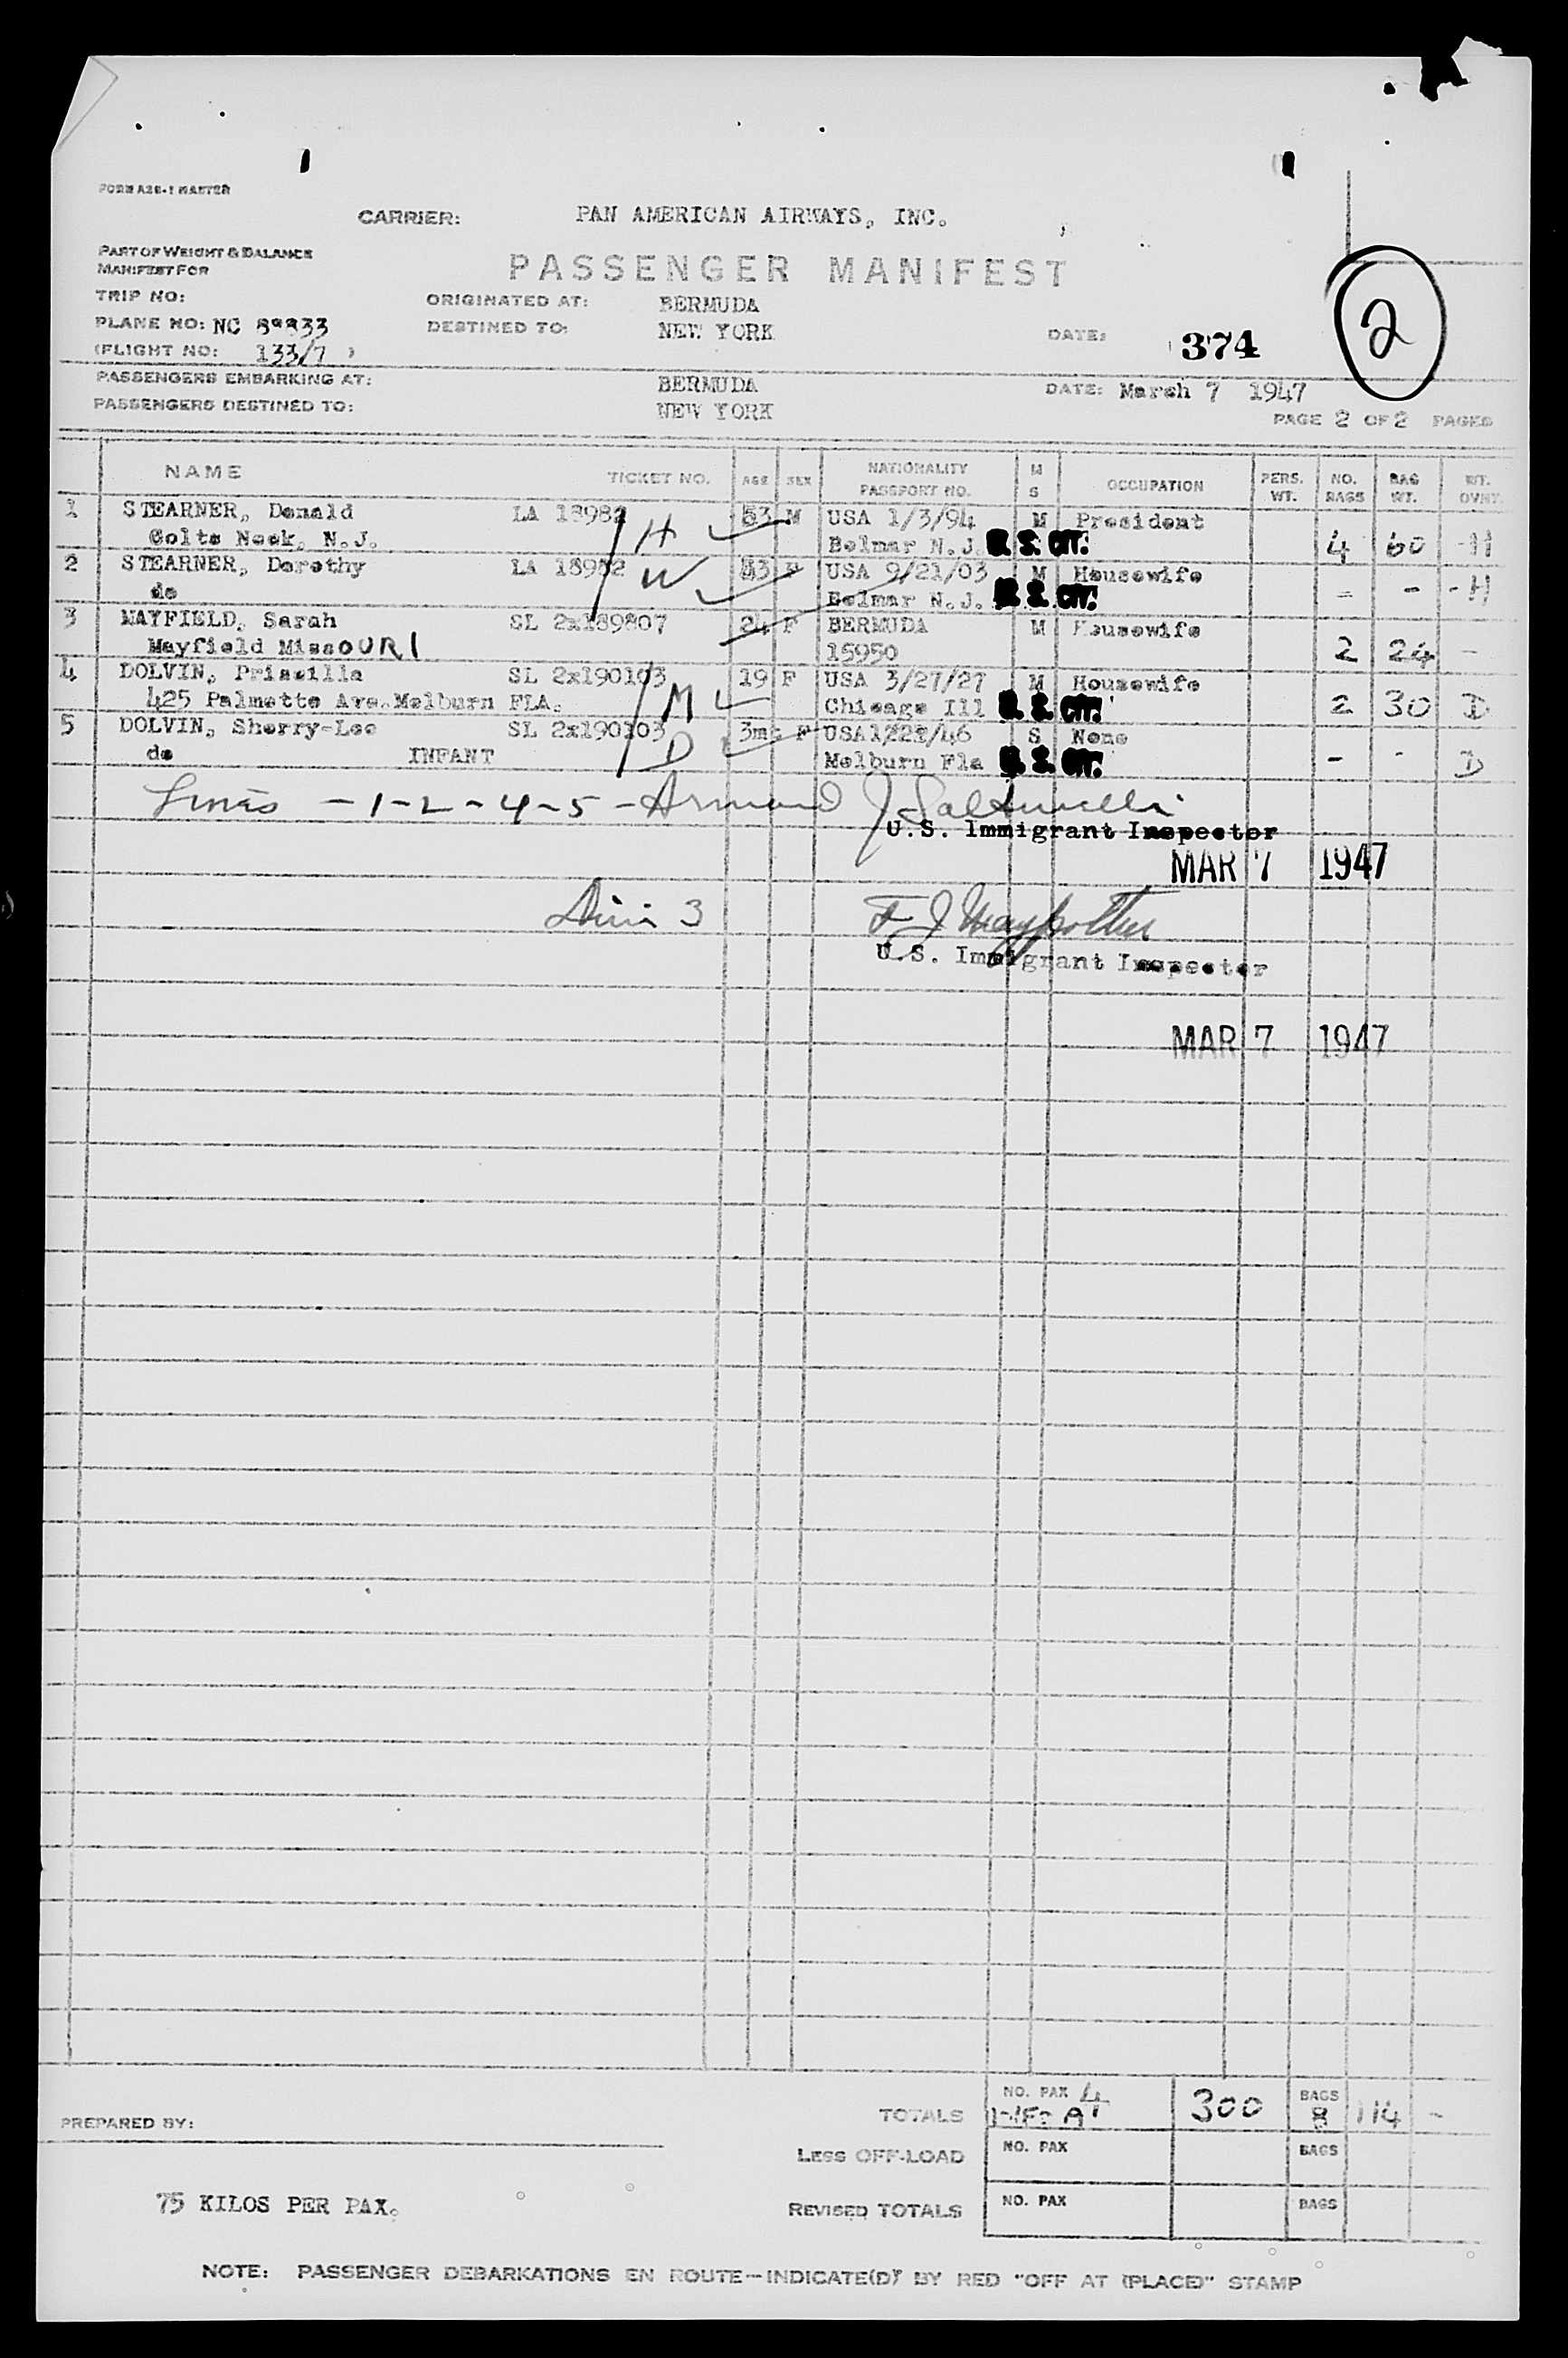 FORM A26-1 MASTER
CARRIER: PAN AMERICAN AIRWAYS, INC.
PART OF WEIGHT & BALANCE
MANIFEST FOR
PASSENGER MANIFEST
TRIP NO: ORIGINATED AT: BERMUDA
PLANE NO: NC 88833 DESTINED TO: NEW YORK DATE: 374 2
(FLIGHT NO: 133/7 )
PASSENGERS EMBARKING AT: BERMUDA DATE: March 7 1947
PASSENGERS DESTINED TO: NEW YORK
PAGE 2 OF 2 PAGES
NAME TICKET NO. AGE SEX NATIONALITY PASSPORT NO. M S OCCUPATION PERS. WT. NO. BAGS BAG WT. WT. OVNT.
1 STEARNER, Donald LA 18982 H 53 M USA 1/3/94 M President
Colts Neck, N.J. Belmar N.J. U. S. CIT. 4 60 -H
2 STEARNER, Dorothy LA 18982 W 43 F USA 9/21/03 M Housewife
do Belmar N.J. U. S. CIT. - - -H
3 MAYFIELD, Sarah SL 2x189807 24 F BERMUDA M Housewife
Mayfield MissOURI 15950 2 24 -
4 DOLVIN, Priscilla SL 2x190103 M 19 F USA 3/27/27 M Housewife
425 Palmetto Ave. Melburn FLA. Chicago Ill U. S. CIT. 2 30 D
5 DOLVIN, Sherry-Lee SL 2x190103 D 3m F USA /46 S None
do INFANT Melburn Fla U. S. CIT. - - D
Lines - 1 - 2 - 4 - 5 - Armand J
U.S. Immigrant Inspector
MAR 7 1947
3 F J
U.S. Immigrant Inspector
MAR 7 1947
TOTALS NO. PAX 4 300 BAGS 8 114 -
PREPARED BY:
LESS OFF-LOAD NO. PAX BAGS
75 KILOS PER PAX.
REVISED TOTALS NO. PAX BAGS
NOTE: PASSENGER DEBARKATIONS EN ROUTE—INDICATE(D) BY RED "OFF AT (PLACE)" STAMP